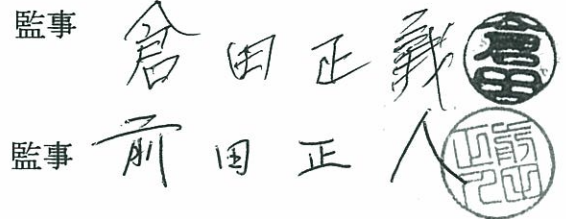 監事 倉田正義 倉田
監事 前田正人